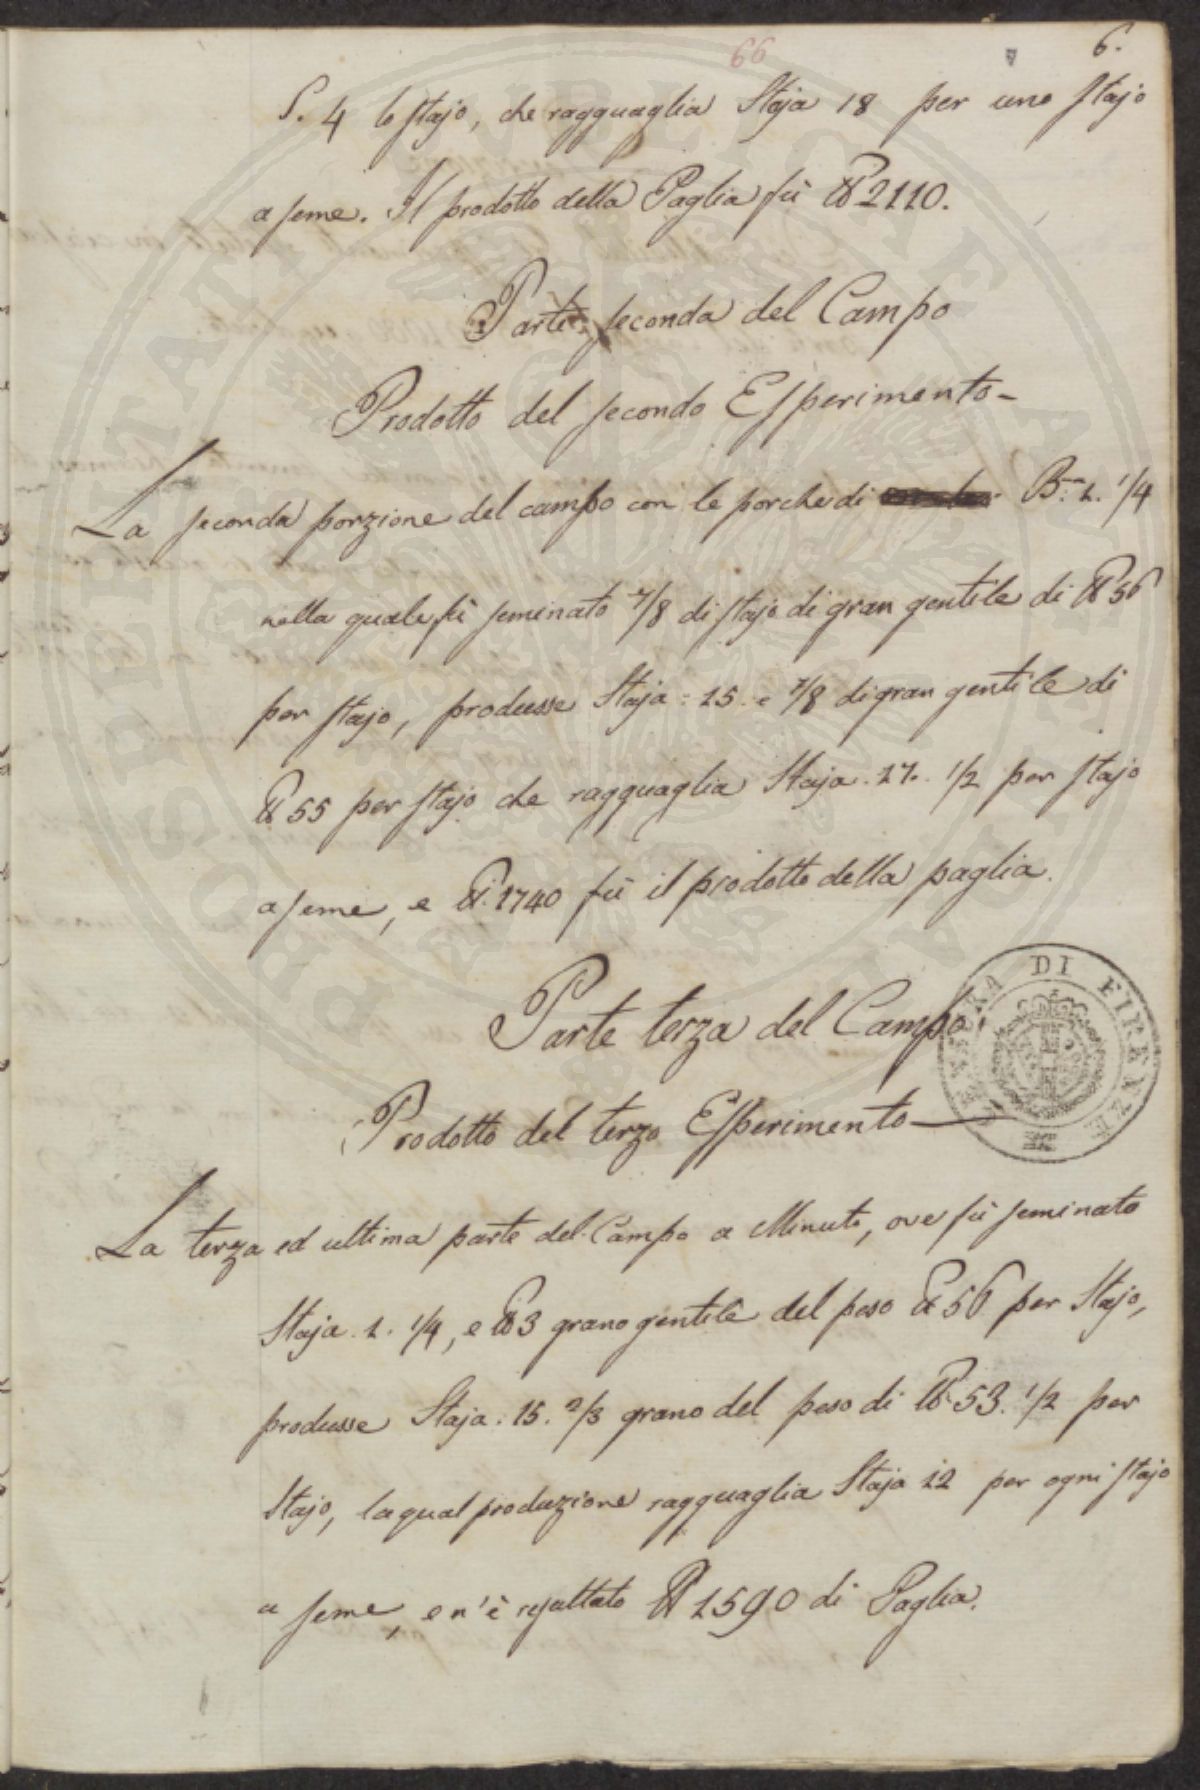 66
6.
S. 4 lo stajo, che ragguaglia Staja 18 per uno stajo
a seme. Il prodotto della Paglia fù ℔ 2110.
Parte seconda del Campo
Prodotto del secondo Esperimento-
La seconda porzione del campo con le porche di B.ª 1. 1/4
nella quale fù seminato 7/8 di stajo di gran gentile di ℔ 56
per stajo, produsse Staja: 15. e 7/8 di gran gentile di
℔ 55 per stajo che ragguaglia Staja. 17. 1/2 per stajo
a seme, e ℔. 1740 fù il prodotto della paglia.
Parte terza del Campo.
Prodotto del terzo Esperimento
La terza ed ultima parte del Campo a Minuto, ove fù seminato
Staja. 1. 1/4, e ℔ 3 grano gentile del peso ℔ 56 per Stajo,
produsse Staja. 15. 2/3 grano del peso di ℔ 53. 1/2 per
Stajo, la qual produzione ragguaglia Staja 12 per ogni stajo
a seme, e n'è resultato ℔ 1590 di Paglia.
DI FIRENZE